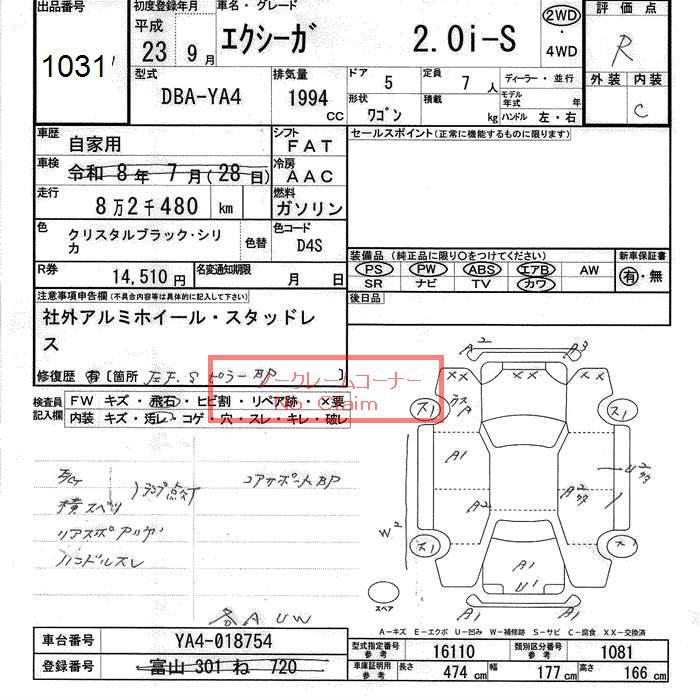 出品番号
1031
初度登録年月
平成
23 9 月
車名・グレード
エクシーガ 2.0i-S
2WD
・
4WD
評価点
R
外装 内装
C
型式
DBA-YA4
排気量
1994
CC
ドア
5
定員
7 人
ディーラー・並行
形状
ワゴン
積載
kg
モデル
年式 年
ハンドル 左・右
車歴
自家用
シフト
FAT
車検
令和 8 年 7 月(28 日)
冷房
AAC
走行
8 万 2 千 480 km
燃料
ガソリン
色
クリスタルブラック・シリ
カ
色替
色コード
D4S
R券
14,510 円
名変通知期限
月 日
セールスポイント(正常に機能するものに限ります)
装備品 (純正品に限り○をつけてください)
新車保証書
PS PW ABS エアB AW
有・無
SR ナビ TV カワ
後日品
注意事項申告欄(不具合内容等は具体的に記入して下さい)
社外アルミホイール・スタッドレ
ス
修復歴 有 [箇所 ピラー BP ]
ノークレームコーナー
No Claim
検査員
記入欄
FW キズ・飛石・ヒビ割・リペア跡・×要
内装 キズ・汚レ・コゲ・穴・スレ・キレ・破レ
ランプ点灯
コアサポートBP
横スベリ
ハンドルスレ
各A UW
A2 A3
XX XX XX
ス1 A ス1
A1
U2
A2 A2
W
ス1 ス1
A1
U1
スペア
A2 A2
A-キズ E-エクボ U-凹み W-補修跡 S-サビ C-腐食 XX-交換済
車台番号
YA4-018754
登録番号
富山 301 ね 720
型式指定番号
参考
16110
類別区分番号
参考
1081
車庫証明用
参考
長さ
474 cm
幅
177 cm
高さ
166 cm